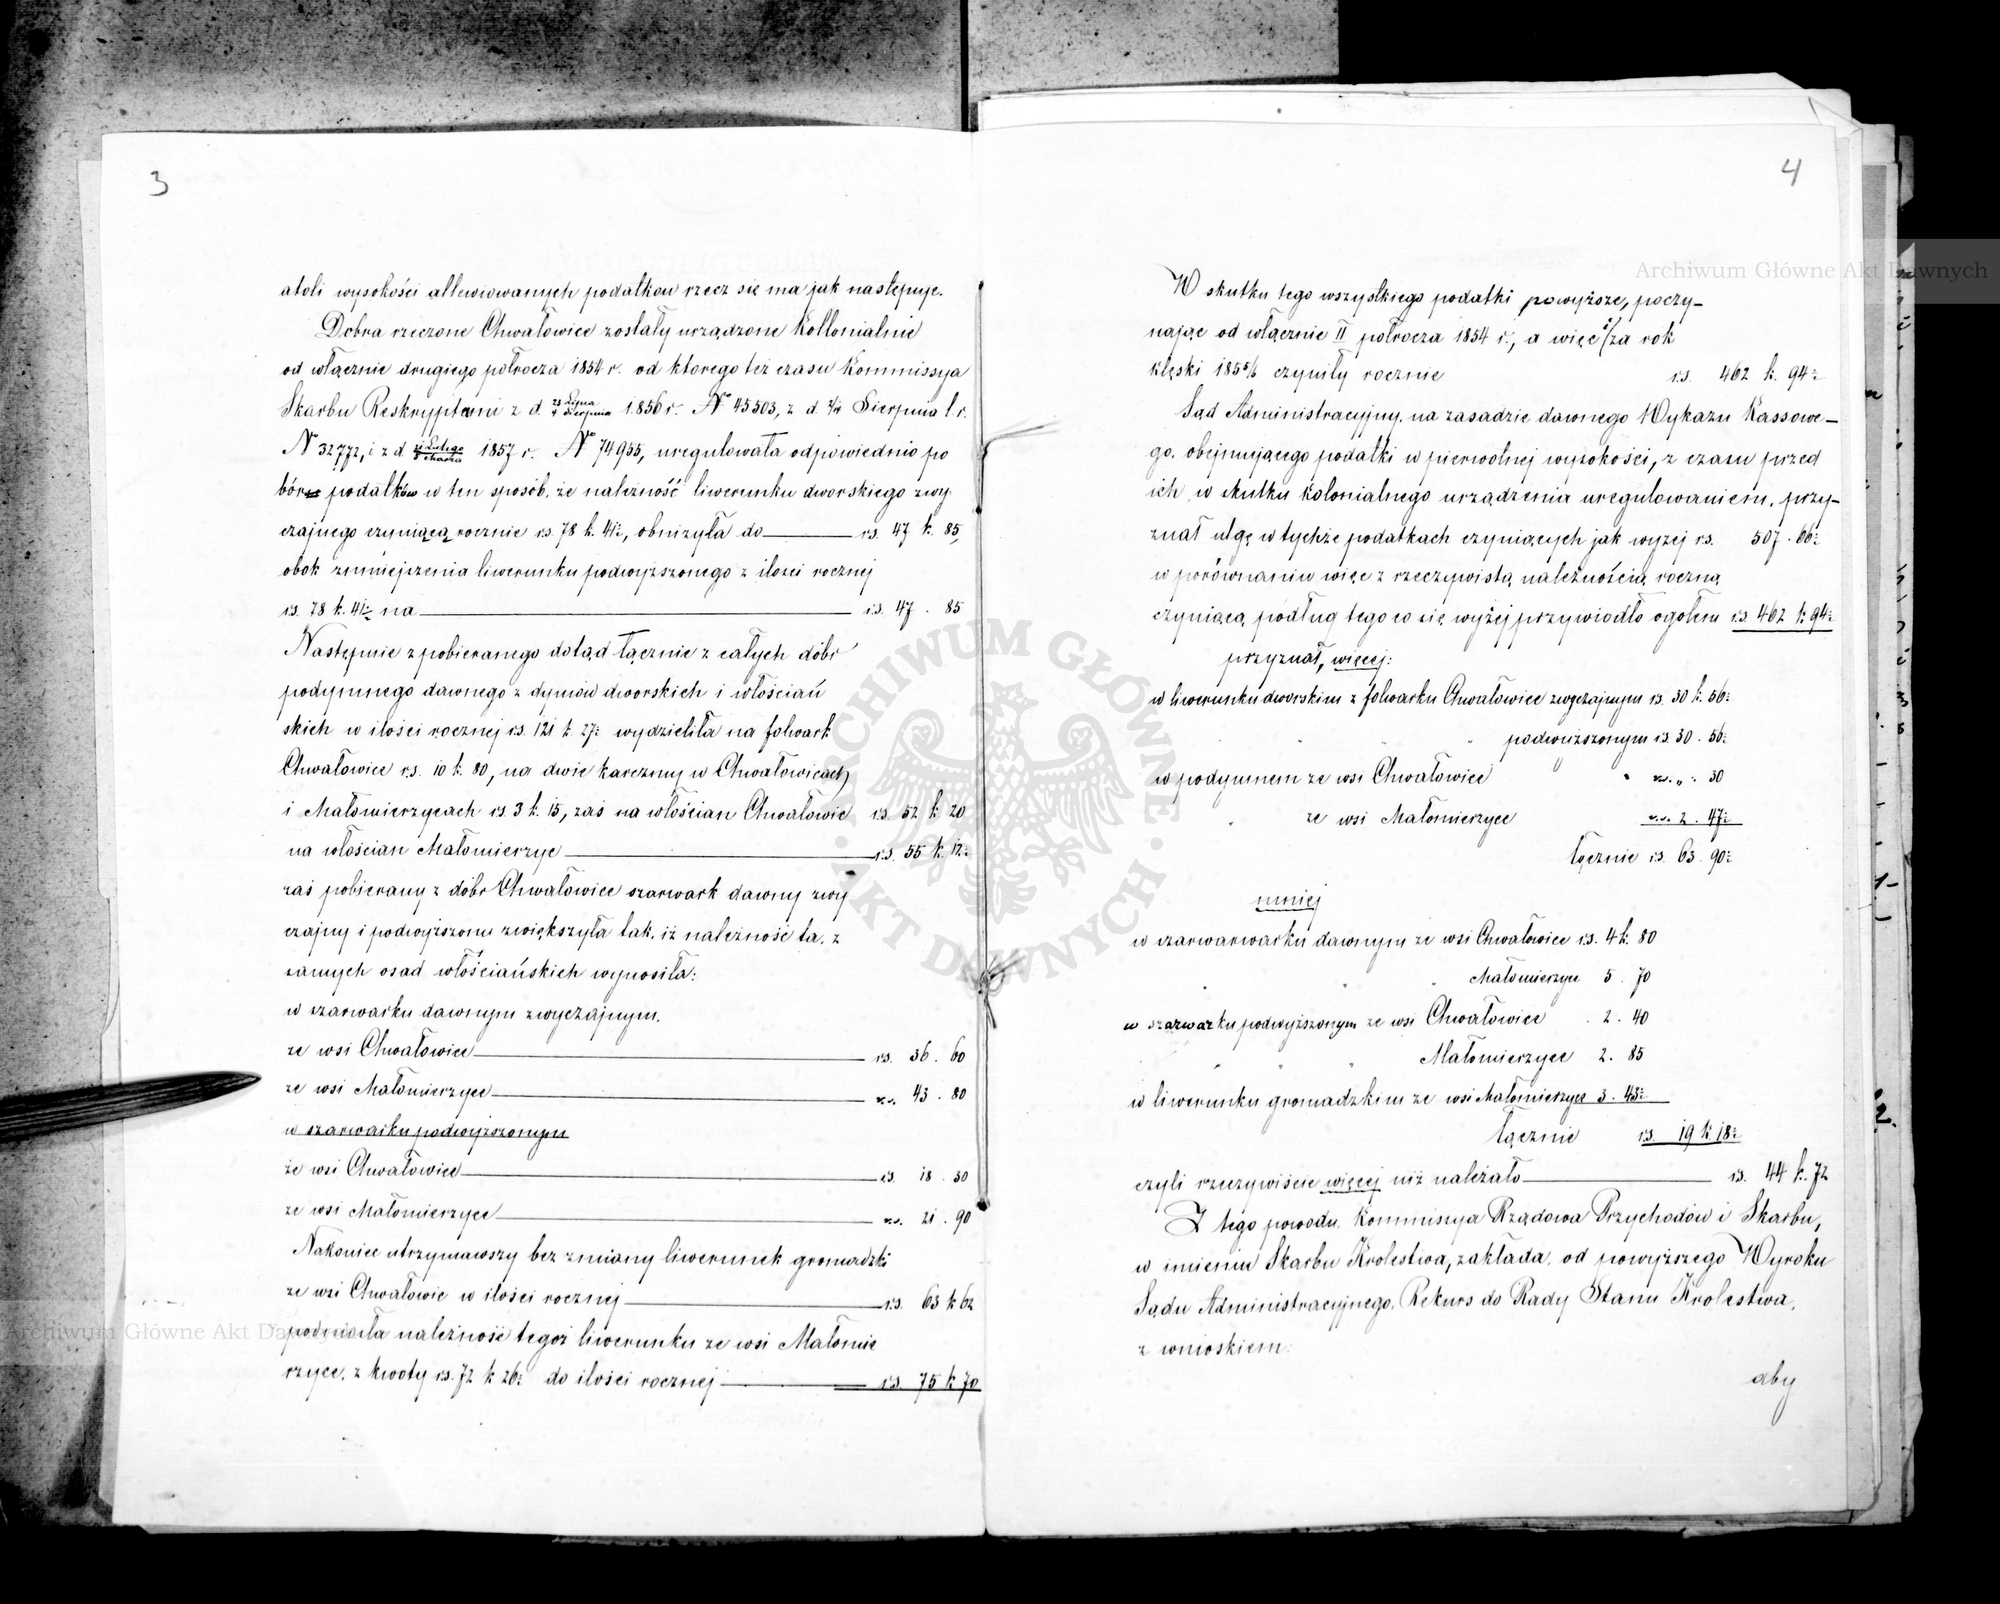 3
atoli wysokości allewiowanych podatkow rzecz się ma jak następuje.
Dobra rzeczone Chwałowice zostały urządzone Kollonialnie
od włącznie drugiego półrocza 1854 r. od ktorego też czasu Kommissya
Skarbu Reskryptami z d. 23 Lipca / 4 Sierpnia 1856 r. No 45503, z d. Sierpnia t. r.
No 32772, i z d. Lutego / Marca 1857 r. No 74955, uregulowała odpowiednio po
bór podatków w ten sposób, że należność liwerunku dworskiego zwy-
czajnego czyniącą rocznie rs. 78 k. 41½, obniżyła do rs. 47 k. 85,
obok zmniejszenia liwerunku podwyższonego z ilości rocznej
rs. 78 k. 41½ na rs. 47 . 85
Następnie z pobieranego dotąd łącznie z całych dóbr
podymnego dawnego z dymów dworskich i włościań
skich w ilości rocznej rs. 121 k. 27½ wydzieliła na folwark
Chwałowice rs. 10 k. 80, na dwie karczmy w Chwałowicach
i Małomierzycach rs. 3 k. 15, zaś na włościan Chwałowic rs. 52 k. 20
na włościan Małomierzyc rs. 55 k. 12½
zaś pobierany z dóbr Chwałowice szarwark dawny zwy
czajny i podwyższony zwiększyła tak, iż należność ta, z
samych osad włościańskich wynosiła:
w szarwarku dawnym zwyczajnym.
ze wsi Chwałowice rs. 36 . 60
ze wsi Małomierzyce rs. 43 . 80
w szarwarku podwyższonym
ze wsi Chwałowice rs. 18 . 30
ze wsi Małomierzyce rs. 21 . 90
Nakoniec utrzymawszy bez zmiany liwerunek gromadzki
ze wsi Chwałowic w ilości rocznej rs. 63 k 62
podniosła należność tegoż liwerunku ze wsi Małomie
rzyce, z kwoty rs. 72 k 26½ do ilości rocznej rs. 75 k 70
4
W skutku tego wszystkiego podatki powyższe, poczy-
nając od włącznie II półrocza 1854 r., a więc i za rok
klęski 1855/6 czyniły rocznie rs. 462 k. 94½
Sąd Administracyjny, na zasadzie dawnego Wykazu Kassowe-
go, obejmującego podatki w pierwotnej wysokości, z czasu przed
ich w skutku kolonialnego urządzenia uregulowaniem, przy-
znał ulgę w tychże podatkach czyniących jak wyżej rs. 507 . 66½
w porównaniu więc z rzeczywistą należnością roczną
czyniącą podług tego co się wyżej przywiodło ogołem rs. 462 k 94½
przyznał, więcej:
w liwerunku dworskim z folwarku Chwałowice zwyczajnym rs. 30 k. 56½
" " " podwyższonym rs. 30 . 56½
w podymnem ze wsi Chwałowice " rs. " . 30
" ze wsi Małomierzyce rs. 2 . 47½
Łącznie rs. 63 . 90½
mniej
w szarwarwarku dawnym ze wsi Chwałowice rs. 4 k. 80
" " " Małomierzyce 5 . 70
w szarwarku podwyższonym ze wsi Chwałowice . 2 . 40
" " " Małomierzyce 2 . 85
w liwerunku gromadzkim ze wsi Małomierzyce 3 . 43½
Łącznie rs. 19 k 18½
czyli rzeczywiście więcej niż należało rs. 44 k. 72
Z tego powodu, Kommissya Rządowa Przychodów i Skarbu,
w imieniu Skarbu Krolestwa, zakłada, od powyższego Wyroku
Sądu Administracyjnego, Rekurs do Rady Stanu Krolestwa,
z wnioskiem:
aby
Archiwum Główne Akt Dawnych
Archiwum Główne Akt Dawnych
ARCHIWUM GŁÓWNE · AKT DAWNYCH ·